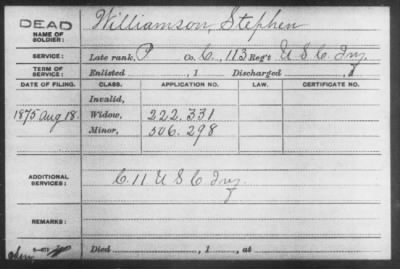 DEAD Williamson, Stephen
NAME OF SOLDIER:
SERVICE: Late rank, P Co. C, 113 Reg't U S C Inf.
TERM OF SERVICE: Enlisted , 1 Discharged , 1
DATE OF FILING. CLASS. APPLICATION NO. LAW. CERTIFICATE NO.
Invalid,
1875 Aug 18. Widow, 222.331
Minor, 506.298
ADDITIONAL SERVICES: C. 11 U S C Inf
REMARKS:
Died , 1 , at